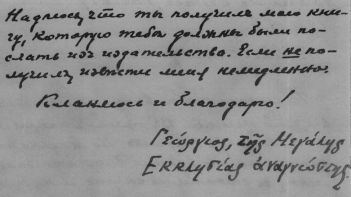 Надеюсь, что ты получилъ мою кни-
гу, которую тебѣ должны были по-
слать изъ издательства. Если не по-
лучилъ извѣсти меня немедленно.
Кланяюсь и благодарю!
Γεώργιος, τῆς Μεγάλης
Ἐκκλησίας ἀναγνώστης.